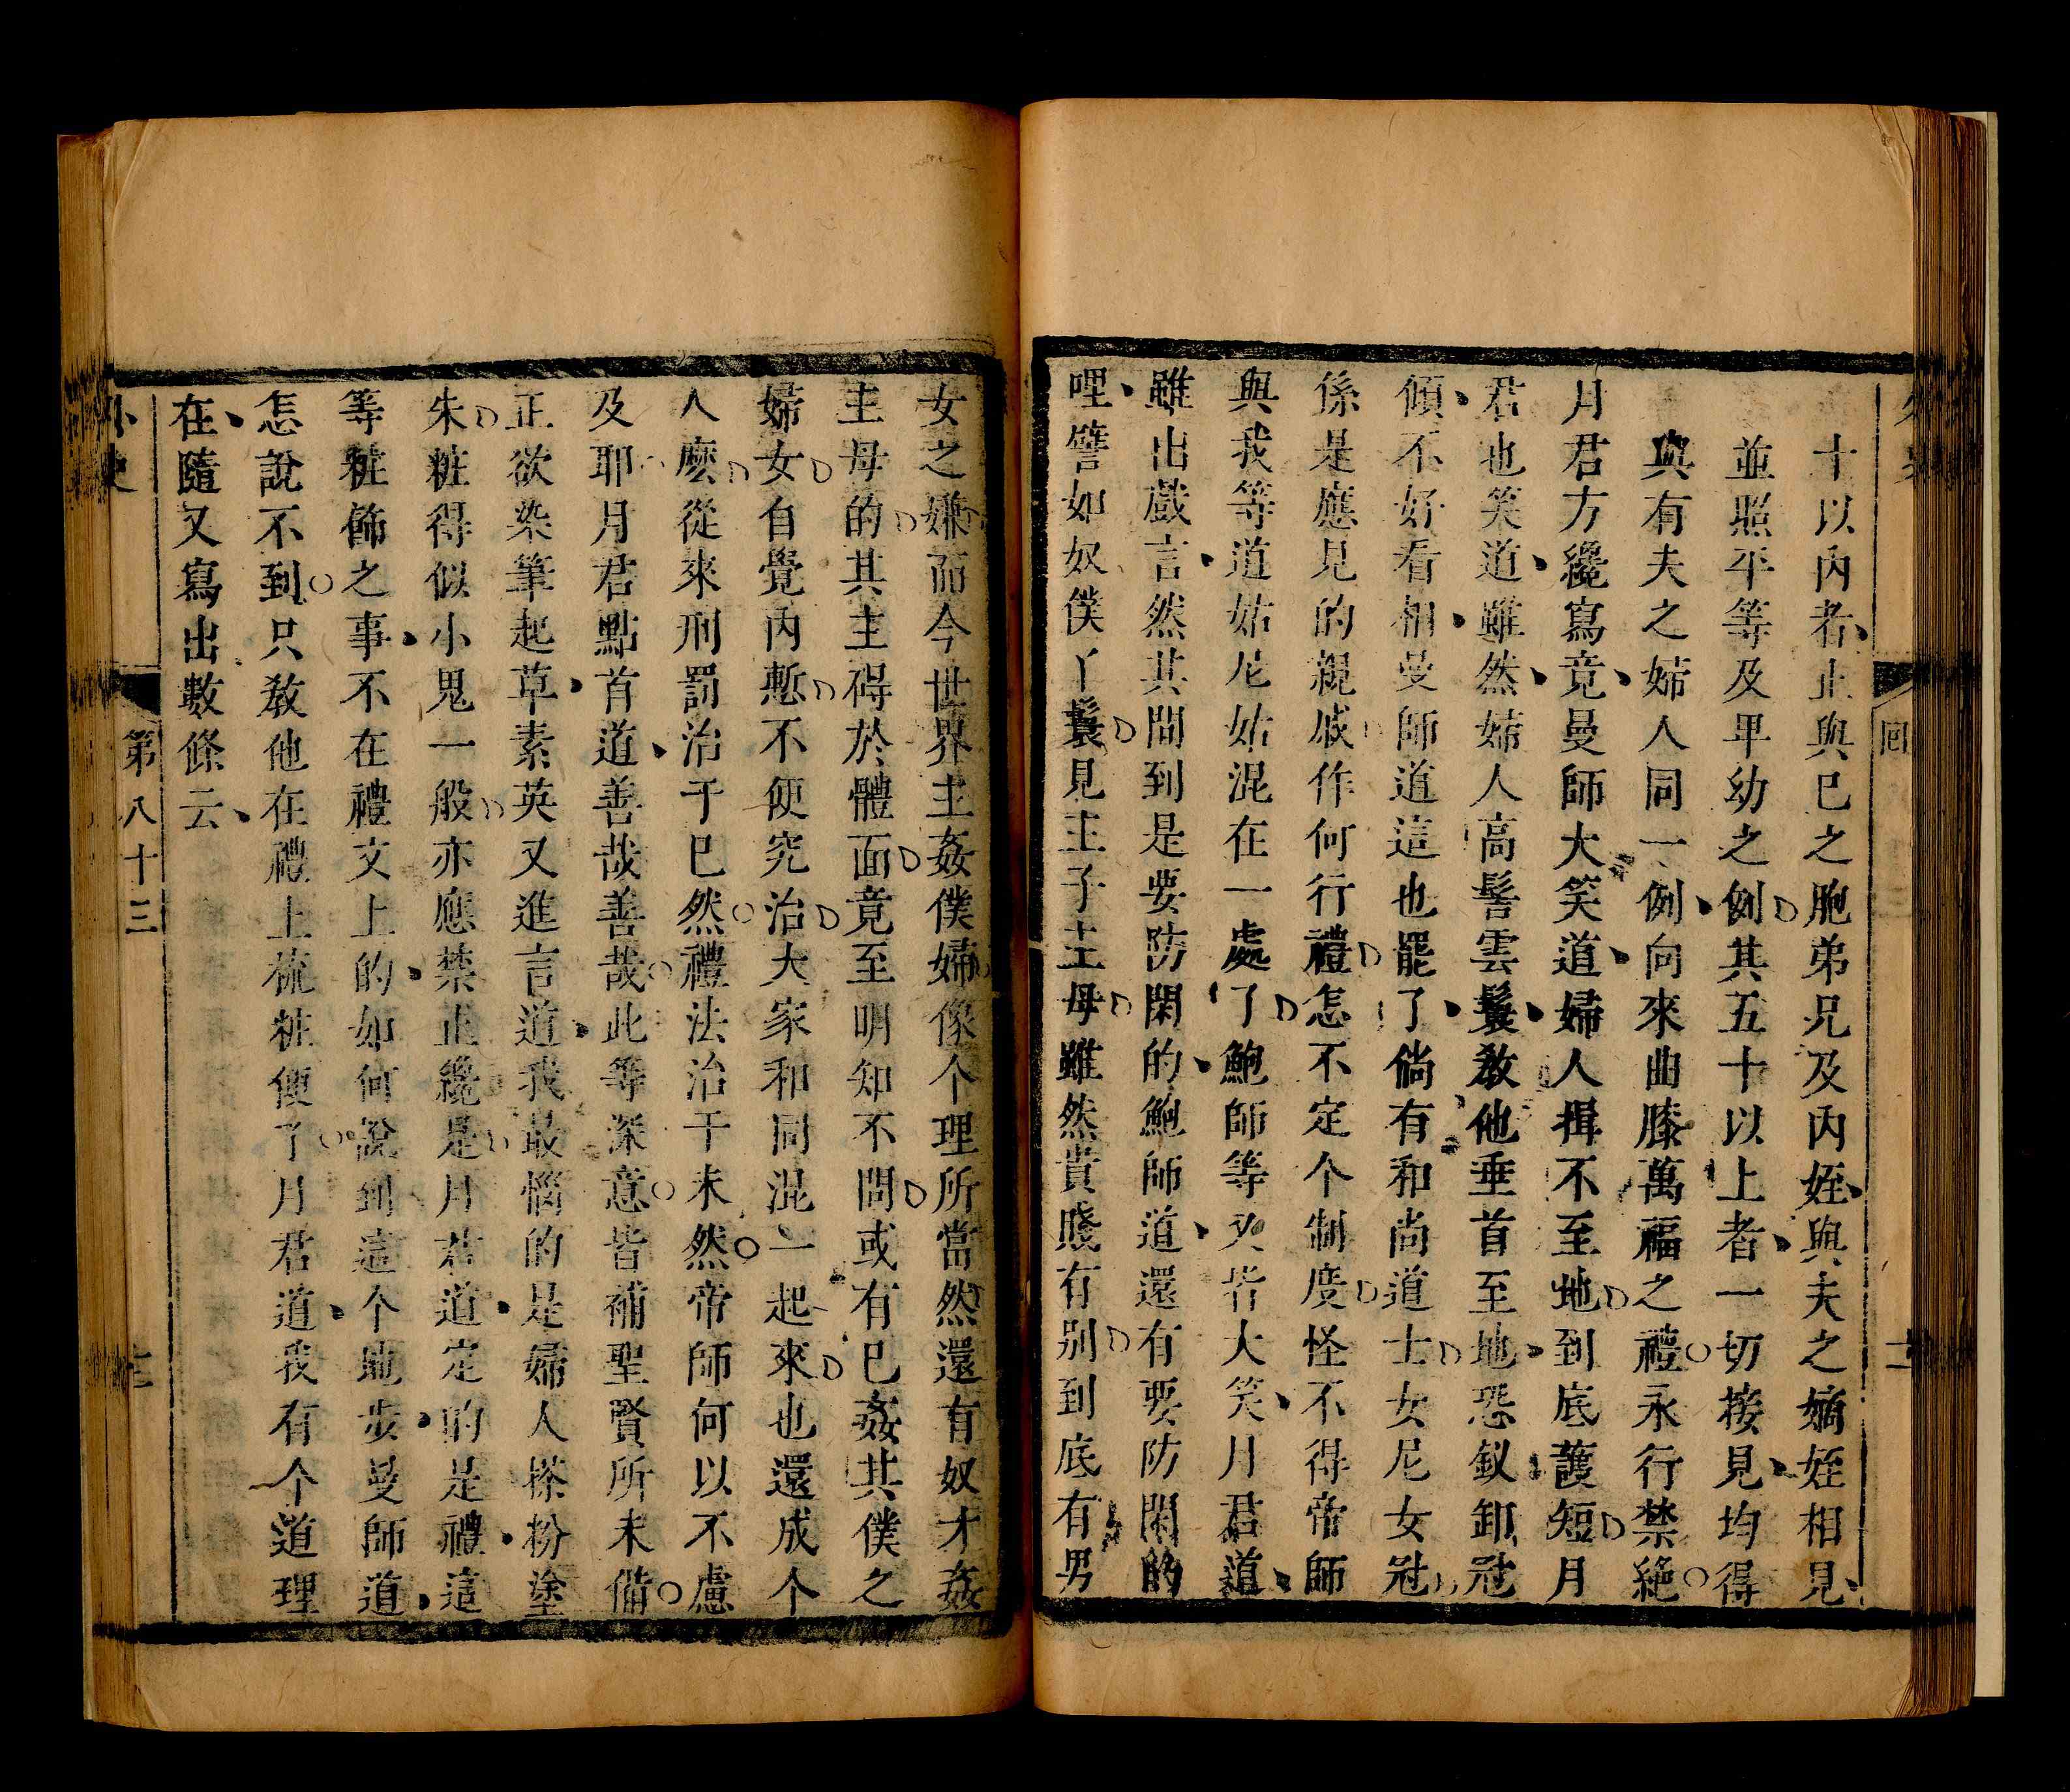 十以內者止與已之胞弟兄及內姪與夫之嫡姪相見
並照平等及卑幼之例其五十以上者一切接見均得
與有夫之婦人同一例向來曲膝萬福之禮永行禁絕
月君方纔寫竟曼師大笑道婦人揖不至地到底護短月
君也笑道雖然婦人高髻雲鬟教他垂首至地恐釵卸冠
傾不好看相曼師道這也罷了倘有和尚道士女尼女冠
係是應見的親戚作何行禮怎不定个制度怪不得帝師
與我等道姑尼姑混在一處了鮑師等又皆大笑月君道
雖出戲言然其間到是要防閑的鮑師道還有要防閑的
哩譬如奴僕丫鬟見主子主母雖然貴賤有別到底有男
女之嫌而今世界主姦僕婦像个理所當然還有奴才姦
主母的其主碍於體面竟至明知不問或有已姦其僕之
婦女自覺內慙不便究治大家和同混一起來也還成个
人麽從來刑罰治于已然禮法治于未然帝師何以不慮
及耶月君點首道善哉善哉此等深意皆補聖賢所未備
正欲染筆起草素英又進言道我最惱的是婦人搽粉塗
朱粧得似小鬼一般亦應禁止纔是月君道定的是禮這
等粧飾之事不在禮文上的如何說到這个地步曼師道
怎說不到只敎他在禮上梳粧便了月君道我有个道理
在隨又寫出數條云
外史
第八十三